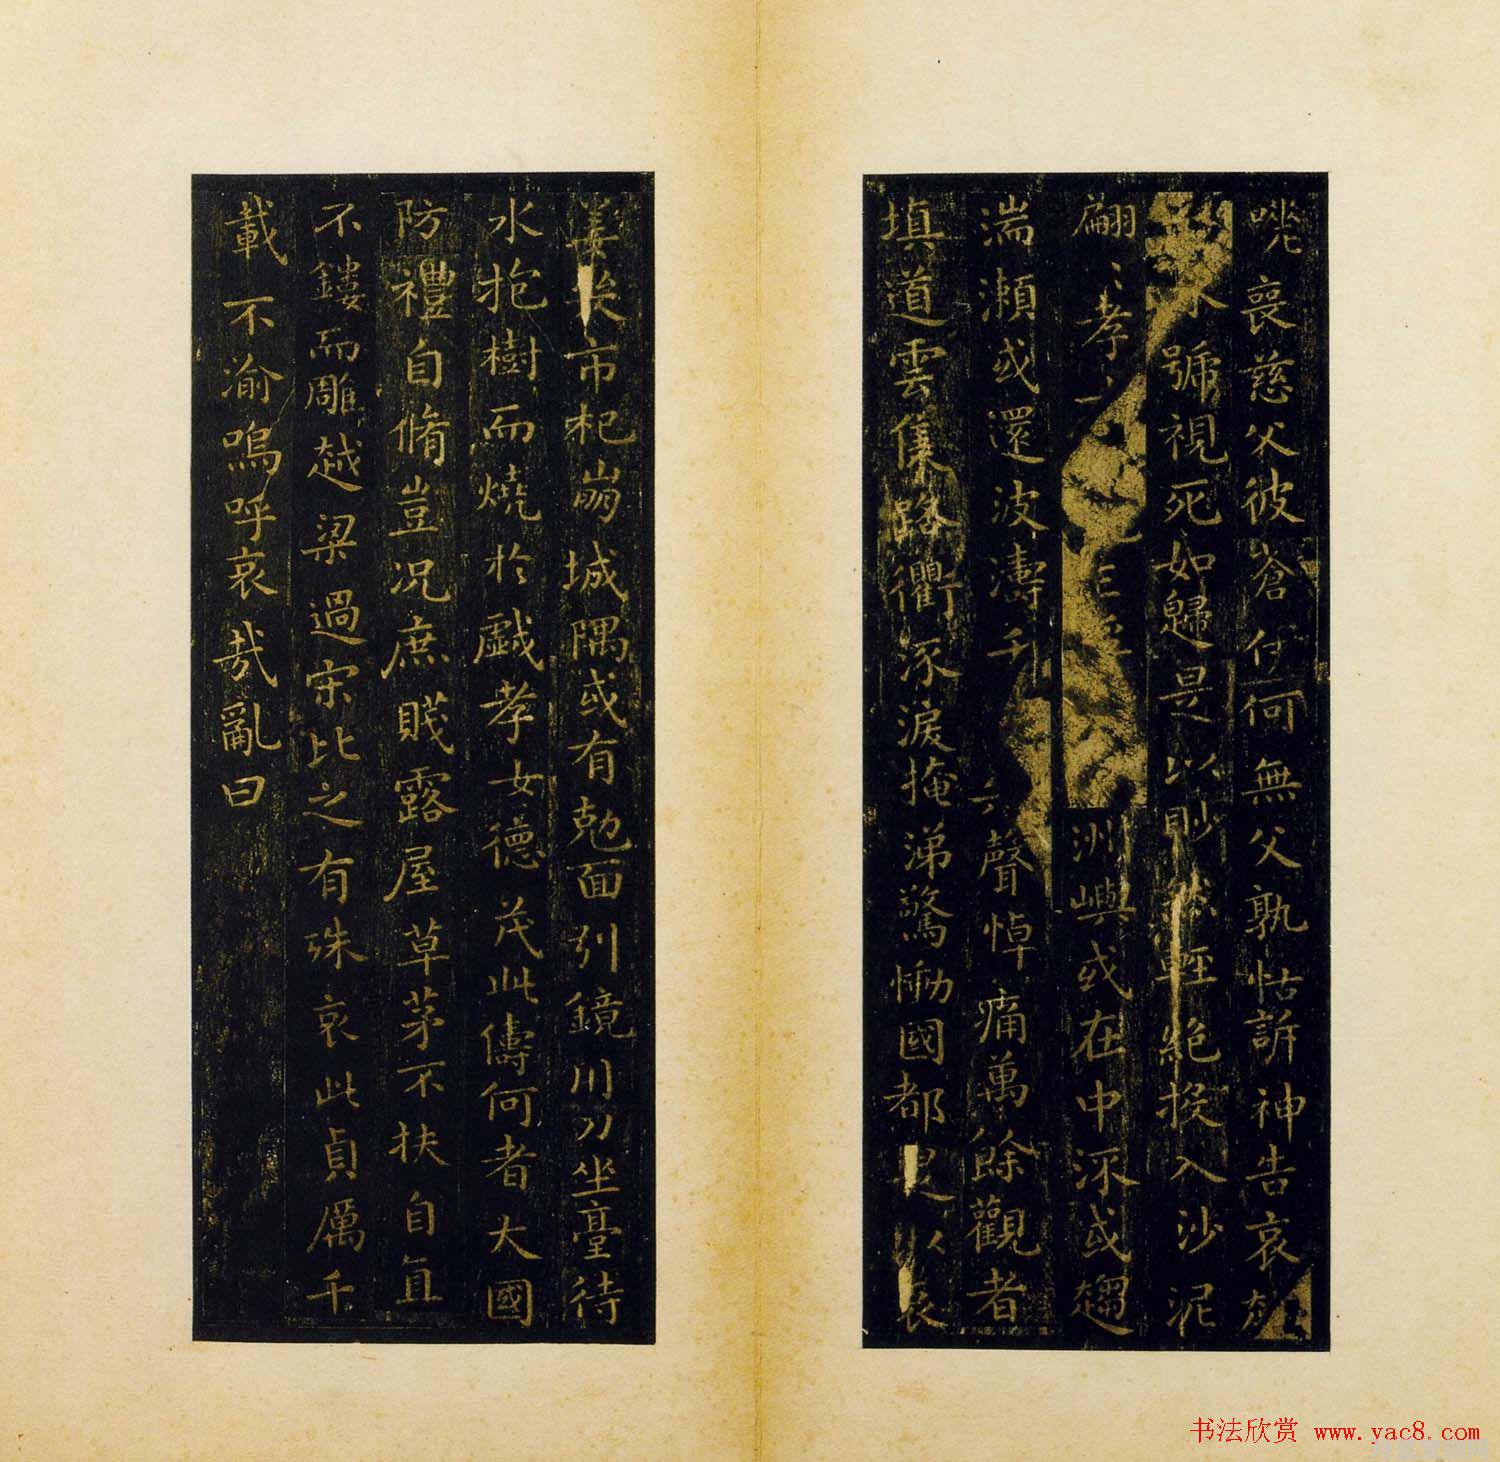 咷喪慈父彼蒼伊何無父孰怙訴神告哀赴
永號視死如歸是以眇然輕絕投入沙泥
翩〻孝女洲嶼或在中流或趨
湍瀨或還波濤千聲悼痛萬餘觀者
填道雲集路衢流淚掩涕驚慟國都是以哀
姜哭市杞崩城隅或有勀面引鏡用刀坐臺待
水抱樹而燒於戲孝女德茂此儔何者大國
防禮自脩豈況庶賤露屋草茅不扶自直
不鏤而雕越梁過宋比之有殊哀此貞厲千
載不渝嗚呼哀哉亂曰
书法欣赏 www.yac8.com